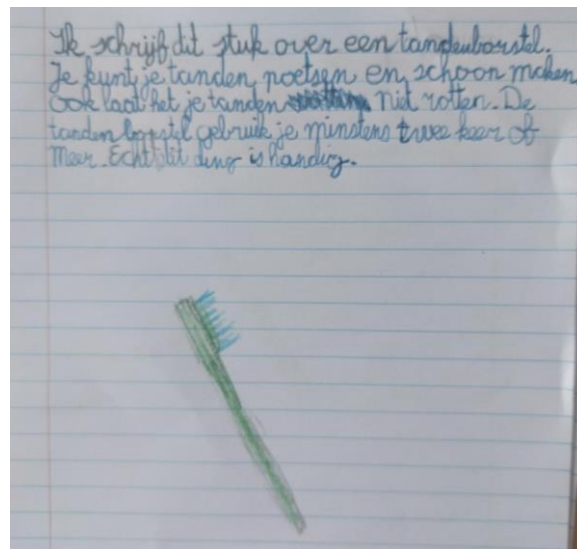 Ik schrijf dit stuk over een tandenborstel.
Je kunt je tanden poetsen en schoon maken
Ook laat het je tanden niet rotten. De
tandenborstel gebruik je minstens twee keer of
meer. Echt dit ding is handig.